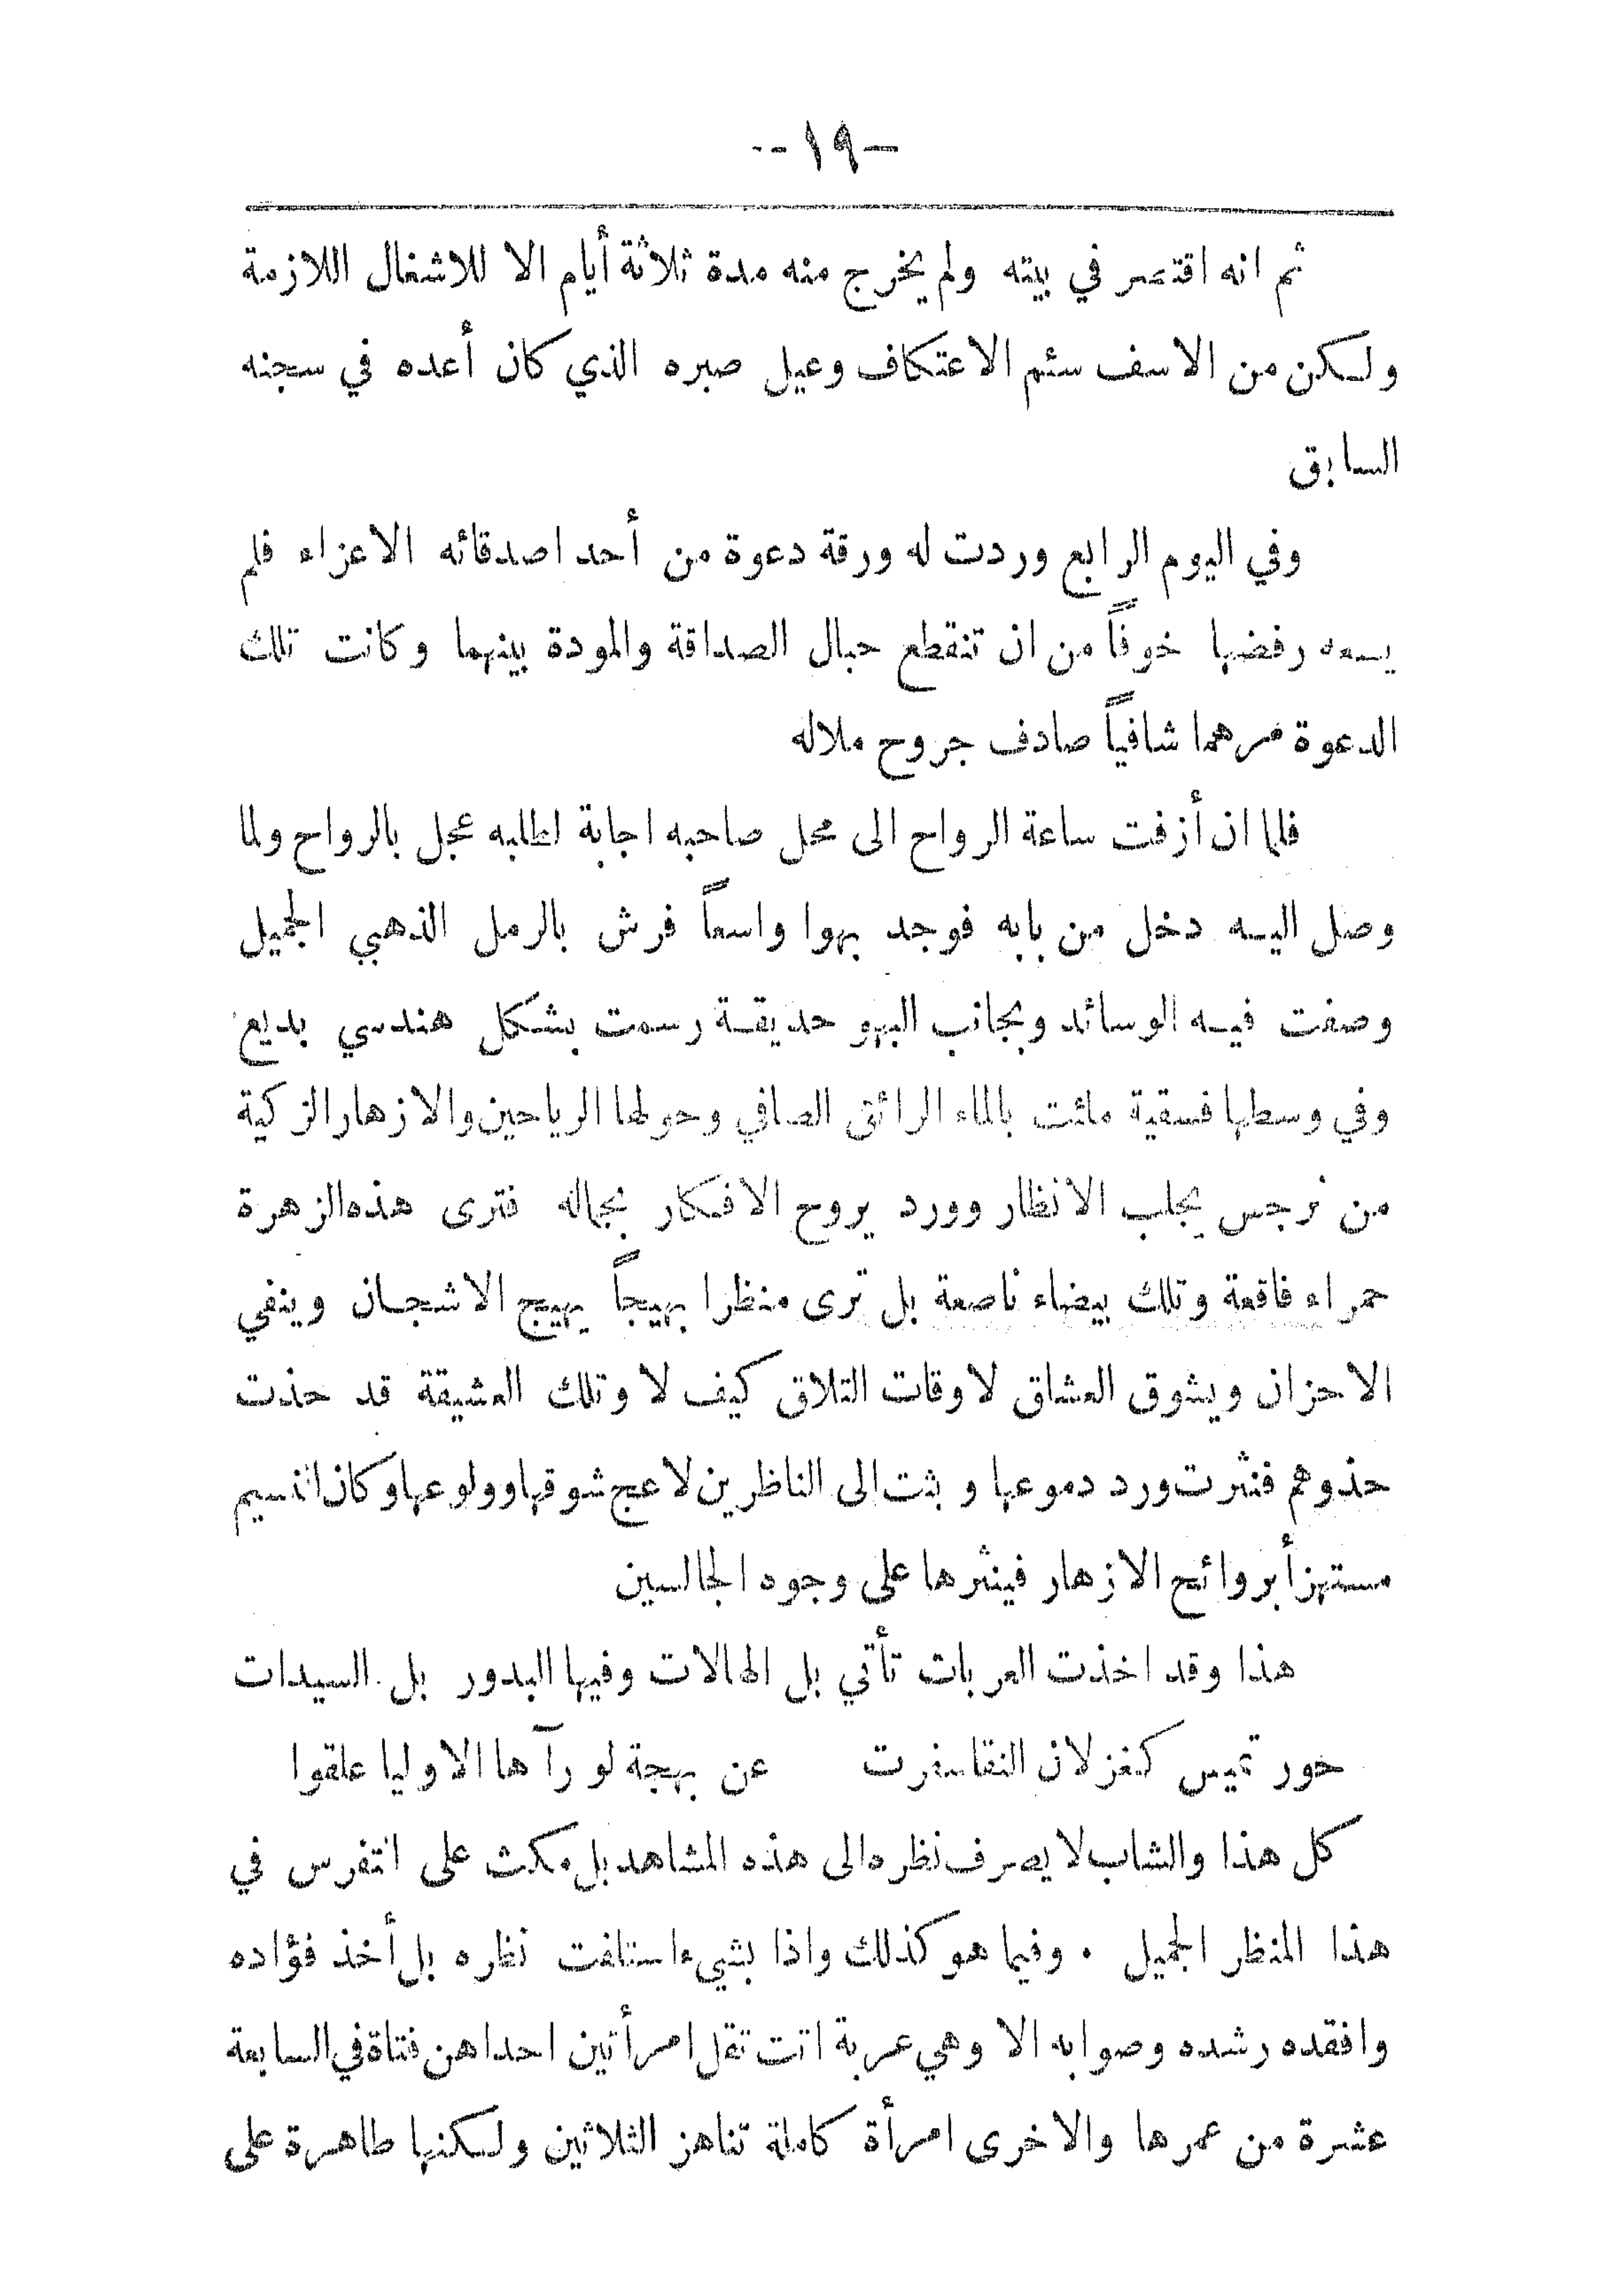 -١٩-
ثم انه اقتصر في بيته ولم يخرج منه مدة ثلاثة أيام الا للاشغال اللازمة
ولكن من الاسف سئم الاعتكاف وعيل صبره الذي كان أعده في سجنه
السابق
وفي اليوم الرابع وردت له ورقة دعوة من أحد اصدقائه الاعزاء فلم
يسعه رفضها خوفاً من ان تنقطع حبال الصداقة والمودة بينهما وكانت تلك
الدعوة مرهما شافياً صادف جروح ملاله
فلما ان أزفت ساعة الرواح الى محل صاحبه اجابة لطلبه عجل بالرواح ولما
وصل اليه دخل من بابه فوجد بهوا واسعاً فرش بالرمل الذهبي الجميل
وصفت فيه الوسائد وبجانب البهو حديقة رسمت بشكل هندسي بديع
وفي وسطها فسقية ملئت بالماء الرائق الصافي وحولها الرياحين والازهار الزكية
من نرجس يجلب الانظار وورد يروح الافكار بجماله فترى هذه الزهرة
حمراء فاقعة وتلك بيضاء ناصعة بل ترى منظرا بهيجاً يهيج الاشجان وينفي
الاحزان ويشوق العشاق لاوقات التلاق كيف لا وتلك العشيقة قد حذت
حذوهم فنثرت ورد دموعها وبثت الى الناظرين لاعج شوقها وولوعها وكان النسيم
مستهزأ بروائح الازهار فينثرها على وجوه الجالسين
هذا وقد اخذت العربات تأتي بل الهالات وفيها البدور بل السيدات
حور تميس كغزلان النقا سفرت عن بهجة لو رآها الاوليا علقوا
كل هذا والشاب لا يصرف نظره الى هذه المشاهد بل مكث على التفرس في
هذا المنظر الجميل . وفيما هو كذلك واذا بشيء استلفت نظره بل أخذ فؤاده
وافقده رشده وصوابه الا وهي عربة اتت تقل امرأتين احداهن فتاة في السابعة
عشرة من عمرها والاخرى امرأة كاملة تناهز الثلاثين ولكنها طاهرة على